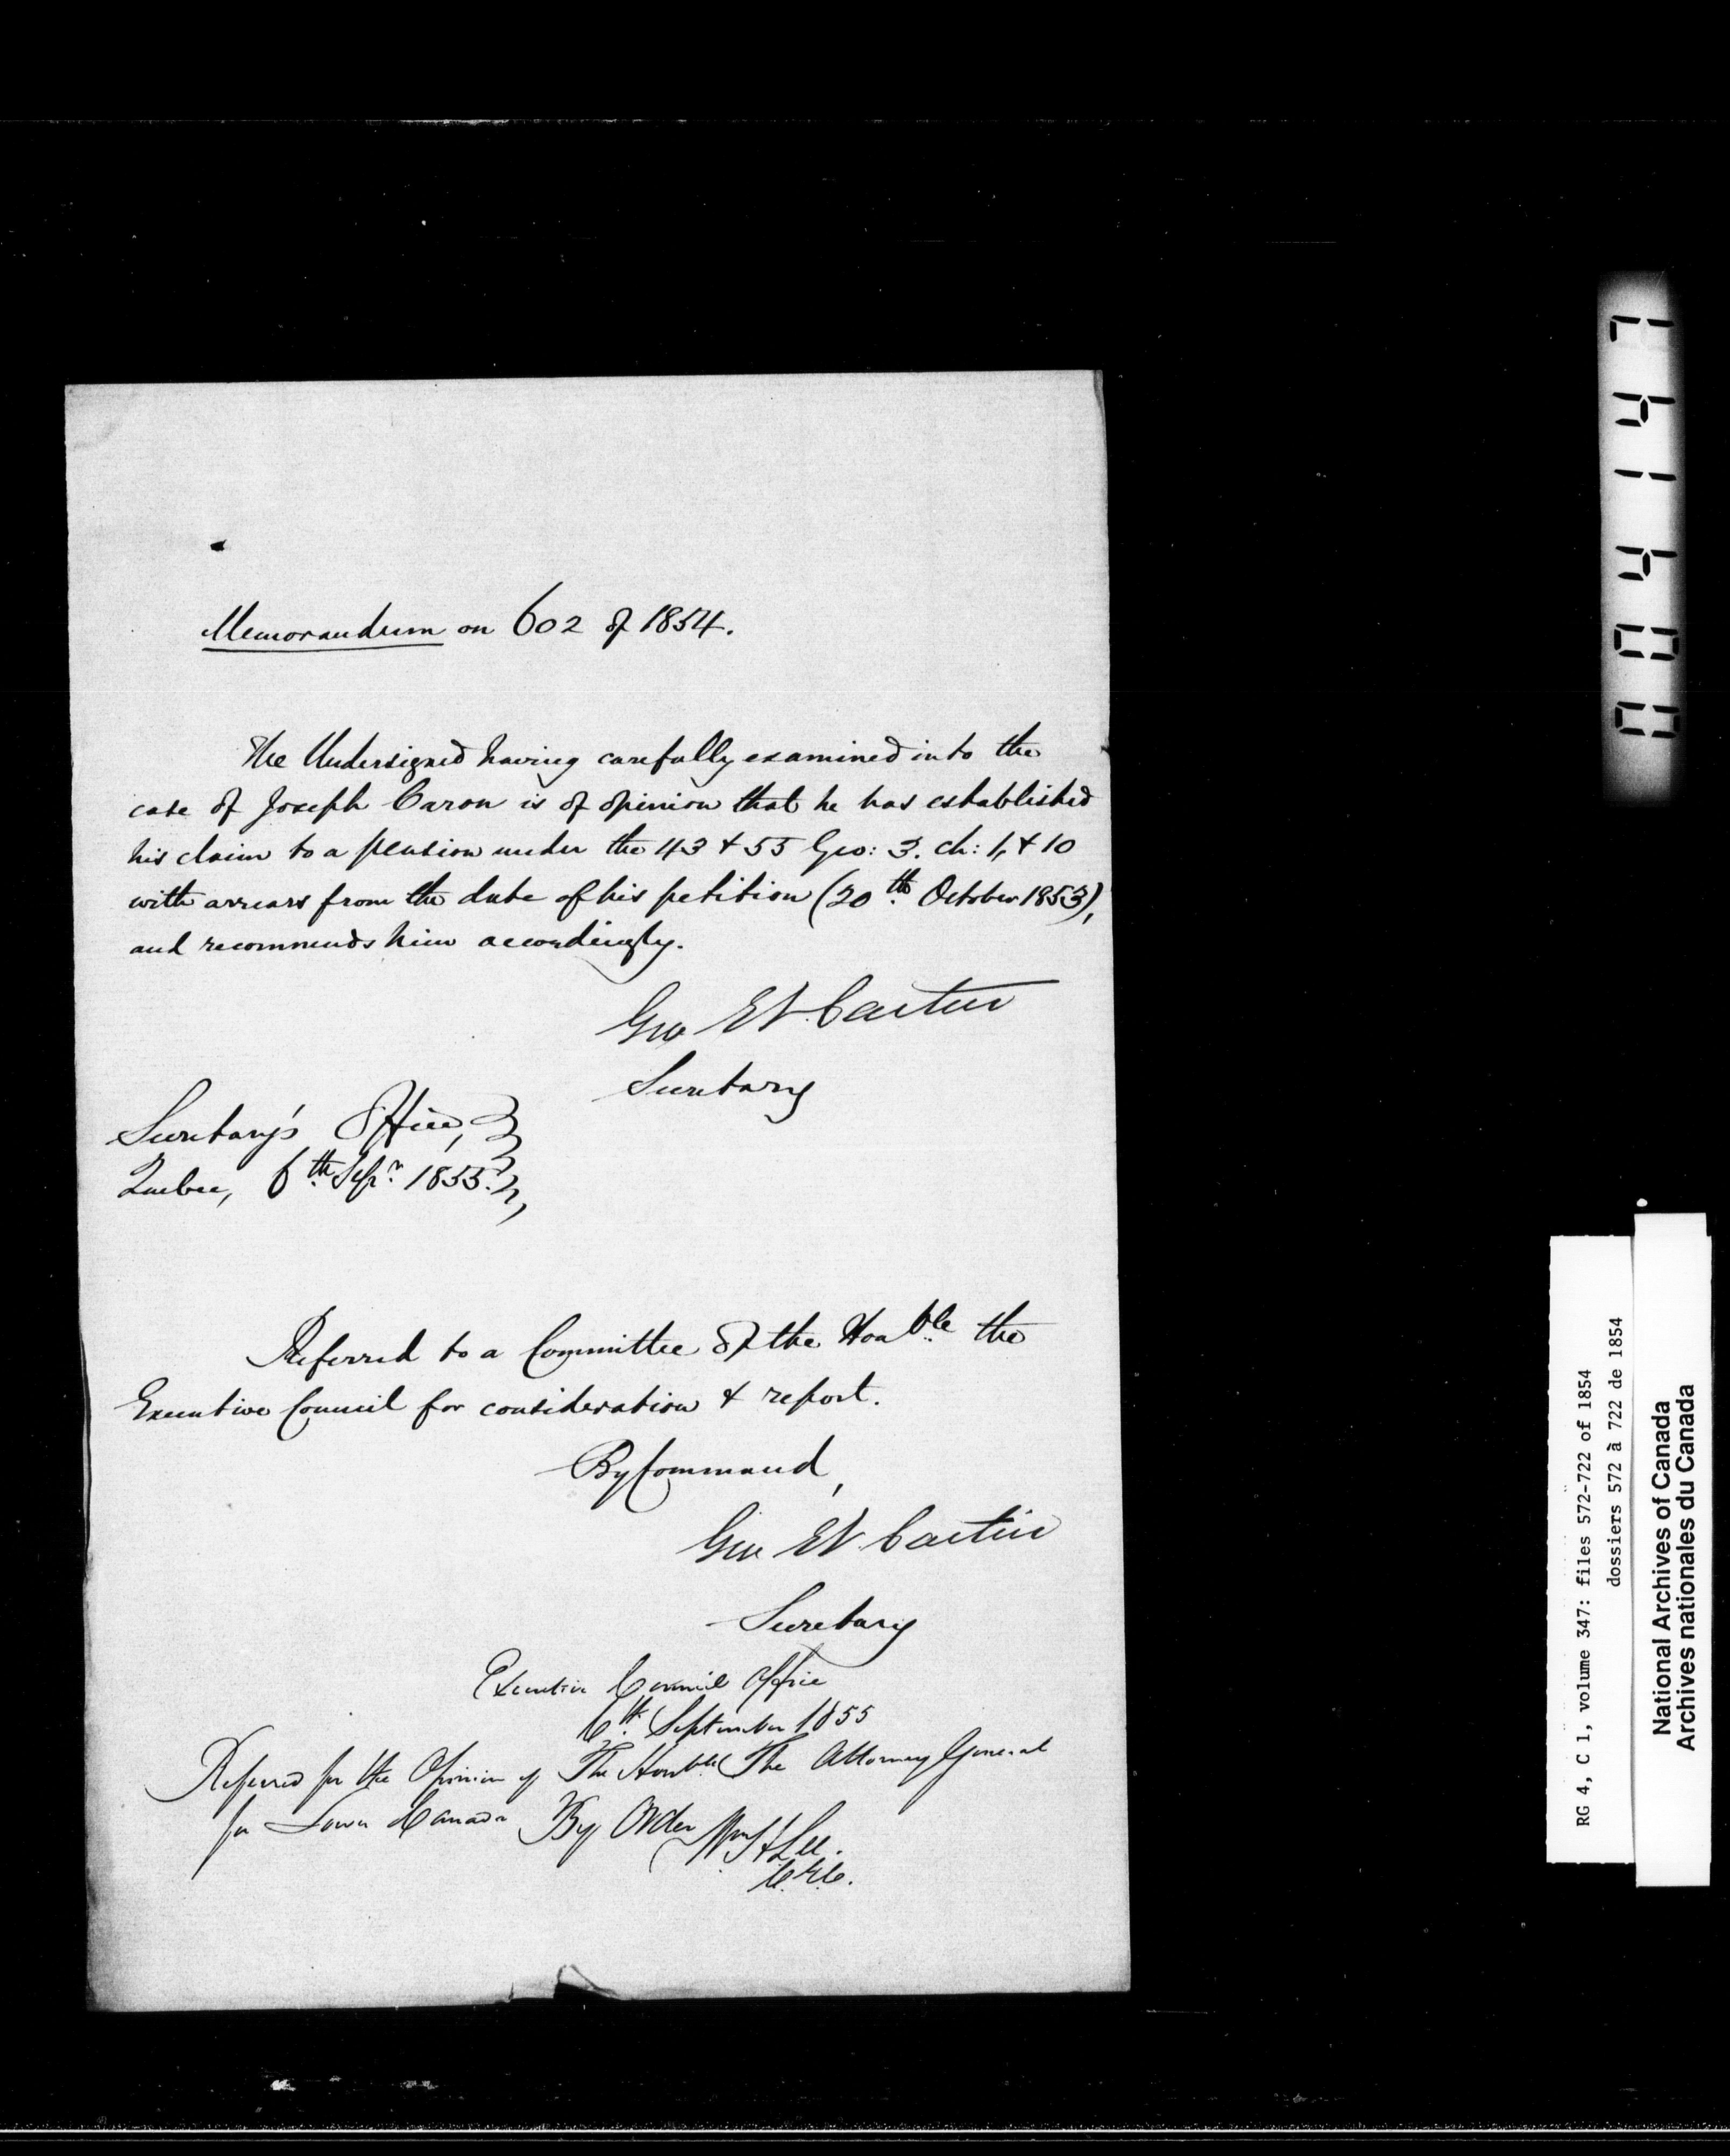 Memorandum on 602 of 1854.
The Undersigned having carefully examined into the
case of Joseph Caron is of opinion that he has established
his claim to a pension under the 43 & 55 Geo: 3. ch: 1, & 10
with arrears from the date of his petition (20th October 1853),
and recommends him accordingly.
Geo Et. Cartier
Secretary
Secretary's Office,
Quebec, 6th Sepr. 1855.
Referred to a Committee of the Honble the
Executive Council for consideration & report.
By Command,
Geo Et. Cartier
Secretary
Executive Council Office
6th September 1855
Referred for the Opinion of The Honble The Attorney General
for Lower Canada By Order
Wm H Lee.
C.E.C.
RG 4, C 1, volume 347: files 572-722 of 1854
dossiers 572 à 722 de 1854
National Archives of Canada
Archives nationales du Canada